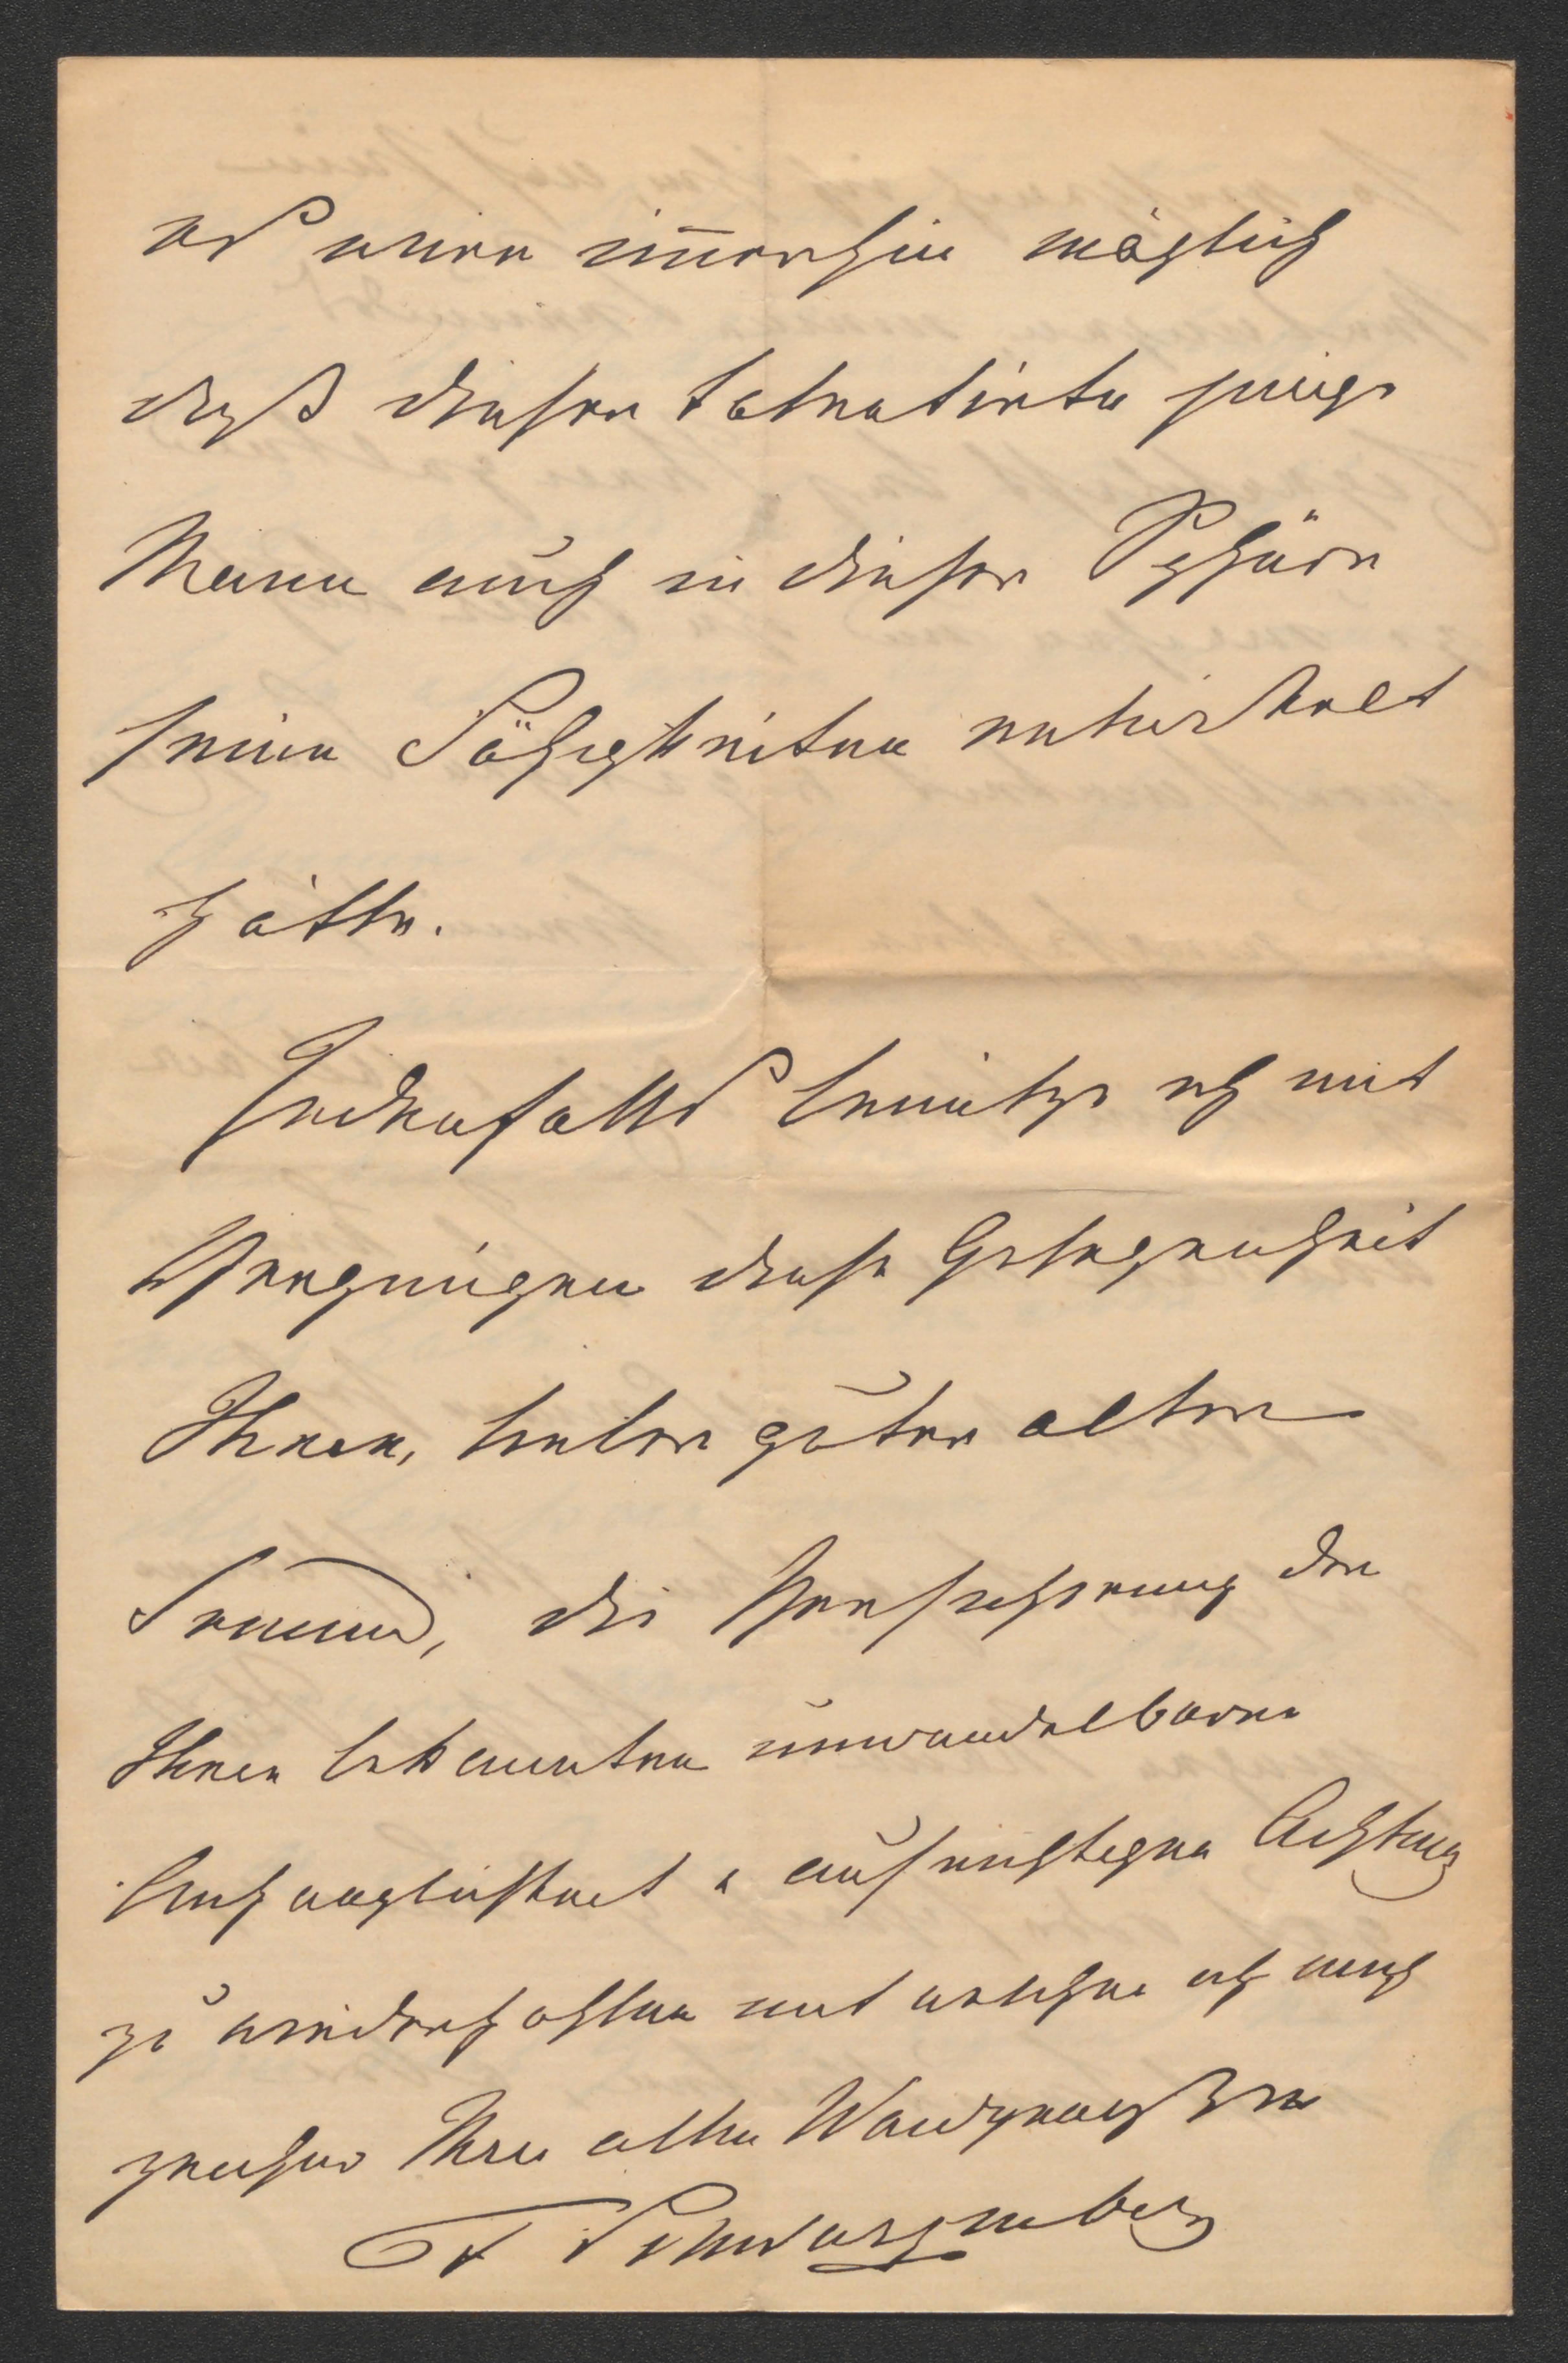 es wäre im̄erhin möglich
daß dieser talentirte junge
Mann auch in dieser Sphäre
seine Fähigkeiten entwickelt
hätte.
Jedenfalls benütze ich mit
Vergnügen diese Gelegenheit
Ihnen, lieber guter alter
Freund, die Versicherung der
Ihnen bekannten unwandelbaren
Anhänglichkeit u aufrichtigen Achtung
zu wiederhohlen mit welcher ich mich
zeichne Ihr alter Waidgenosse
F Schwarzenberg